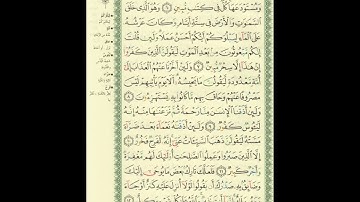 وَمُسْتَوْدَعَهَا كُلٌّ فِي كِتَٰبٍ مُّبِينٍ ۝٦ وَهُوَ ٱلَّذِي خَلَقَ
ٱلسَّمَٰوَٰتِ وَٱلْأَرْضَ فِي سِتَّةِ أَيَّامٍ وَكَانَ عَرْشُهُۥ
عَلَى ٱلْمَآءِ لِيَبْلُوَكُمْ أَيُّكُمْ أَحْسَنُ عَمَلًا وَلَئِن قُلْتَ
إِنَّكُم مَّبْعُوثُونَ مِنۢ بَعْدِ ٱلْمَوْتِ لَيَقُولَنَّ ٱلَّذِينَ كَفَرُوٓا۟
إِنْ هَٰذَآ إِلَّا سِحْرٌ مُّبِينٌ ۝٧ وَلَئِنْ أَخَّرْنَا عَنْهُمُ ٱلْعَذَابَ إِلَىٰٓ
أُمَّةٍ مَّعْدُودَةٍ لَّيَقُولُنَّ مَا يَحْبِسُهُۥٓ أَلَا يَوْمَ يَأْتِيهِمْ لَيْسَ
مَصْرُوفًا عَنْهُمْ وَحَاقَ بِهِم مَّا كَانُوا۟ بِهِۦ يَسْتَهْزِءُونَ ۝٨
وَلَئِنْ أَذَقْنَا ٱلْإِنسَٰنَ مِنَّا رَحْمَةً ثُمَّ نَزَعْنَٰهَا مِنْهُ إِنَّهُۥ
لَيَـُٔوسٌ كَفُورٌ ۝٩ وَلَئِنْ أَذَقْنَٰهُ نَعْمَآءَ بَعْدَ ضَرَّآءَ
مَسَّتْهُ لَيَقُولَنَّ ذَهَبَ ٱلسَّيِّـَٔاتُ عَنِّيٓ إِنَّهُۥ لَفَرِحٌ فَخُورٌ ۝١٠
إِلَّا ٱلَّذِينَ صَبَرُوا۟ وَعَمِلُوا۟ ٱلصَّٰلِحَٰتِ أُو۟لَٰٓئِكَ لَهُم مَّغْفِرَةٌ
وَأَجْرٌ كَبِيرٌ ۝١١ فَلَعَلَّكَ تَارِكٌۢ بَعْضَ مَا يُوحَىٰٓ إِلَيْكَ
وَضَآئِقٌۢ بِهِۦ صَدْرُكَ أَن يَقُولُوا۟ لَوْلَآ أُنزِلَ عَلَيْهِ كَنزٌ أَوْ جَآءَ